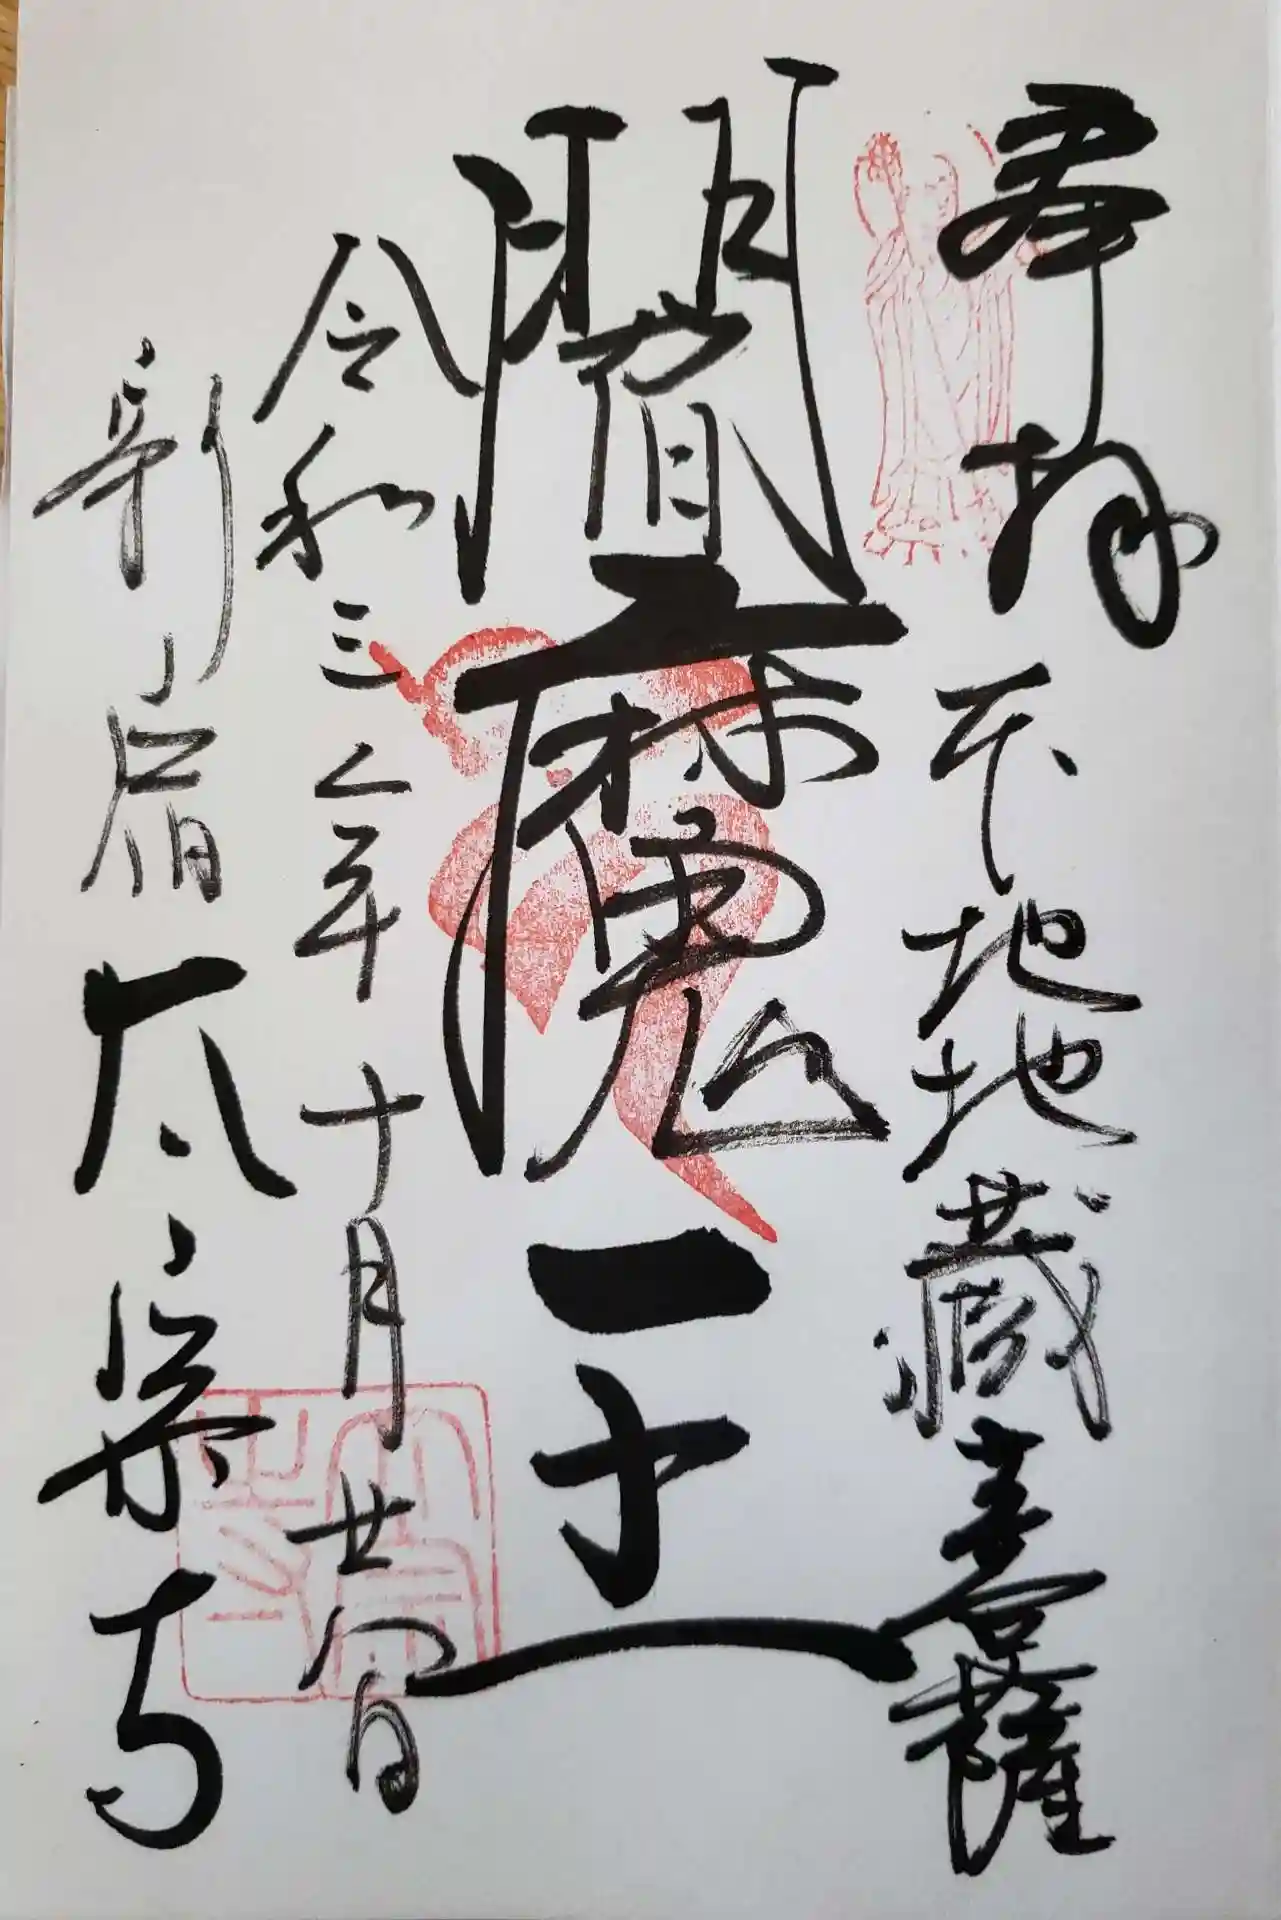 奉拝 本地地蔵菩薩
閻魔王
令和三年十月廿八日
新宿 太宗寺